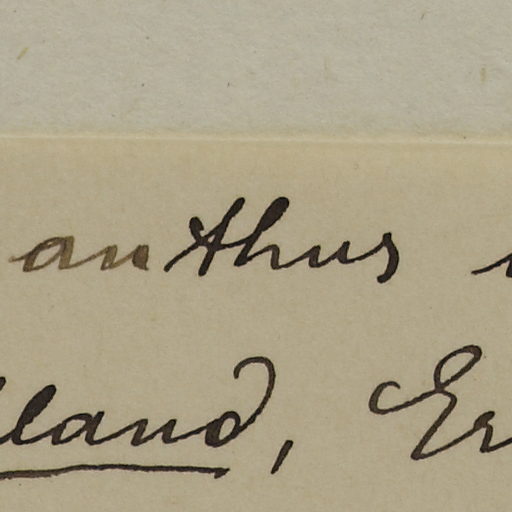 anthus
lland, Er